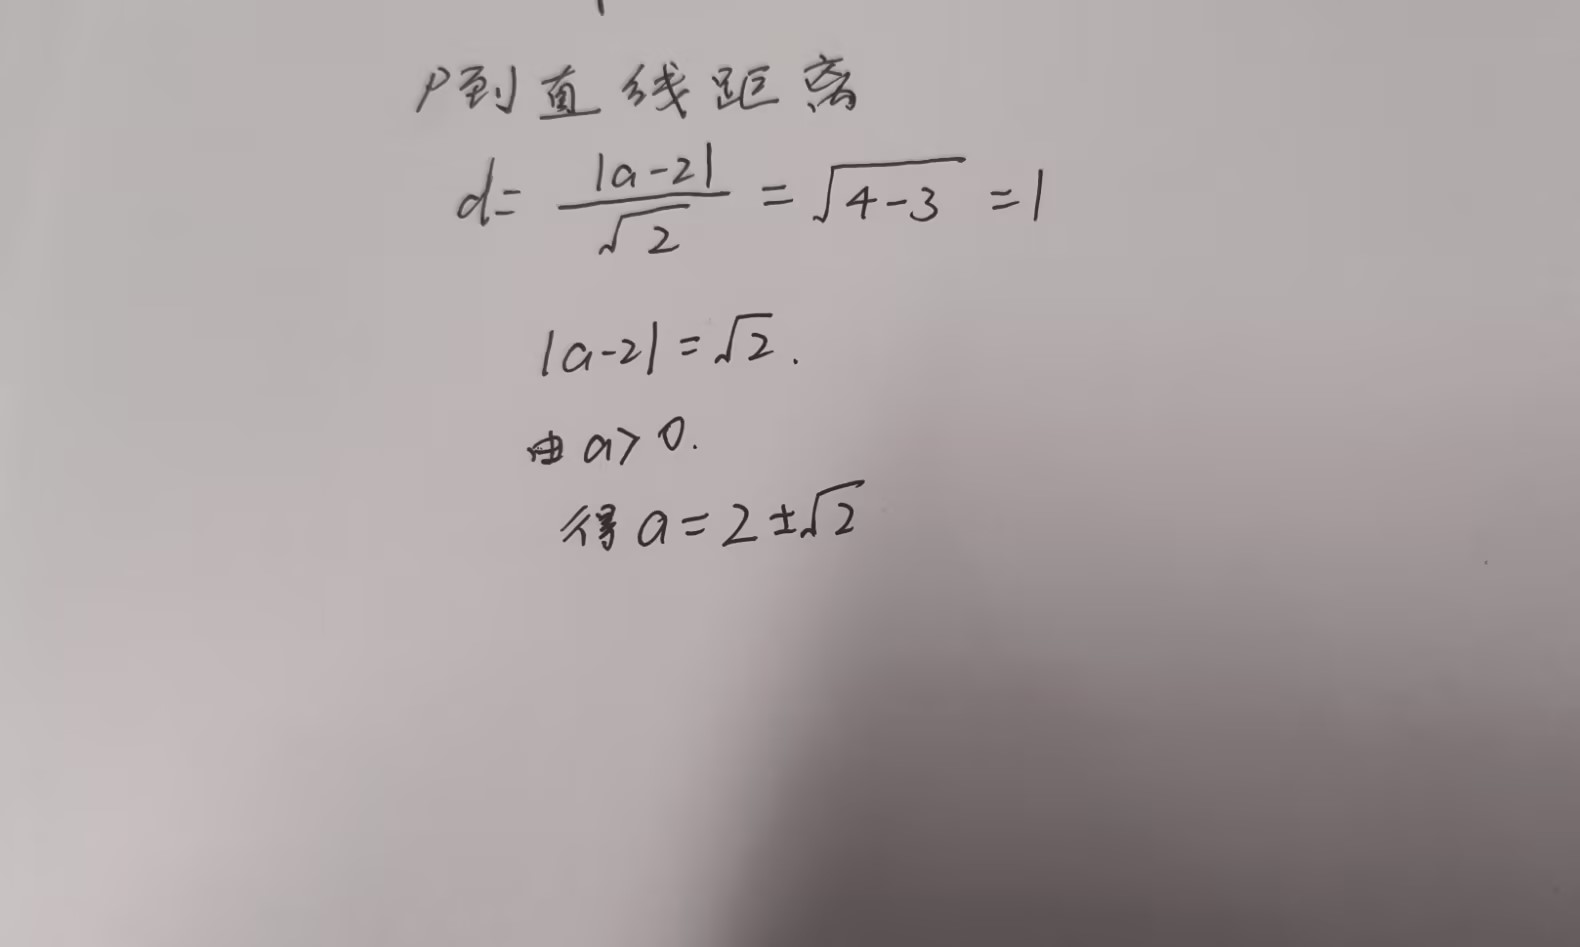 P到直线距离
d = |a-2| / √2 = √4-3 = 1
|a-2| = √2.
由 a > 0.
得 a = 2 ± √2